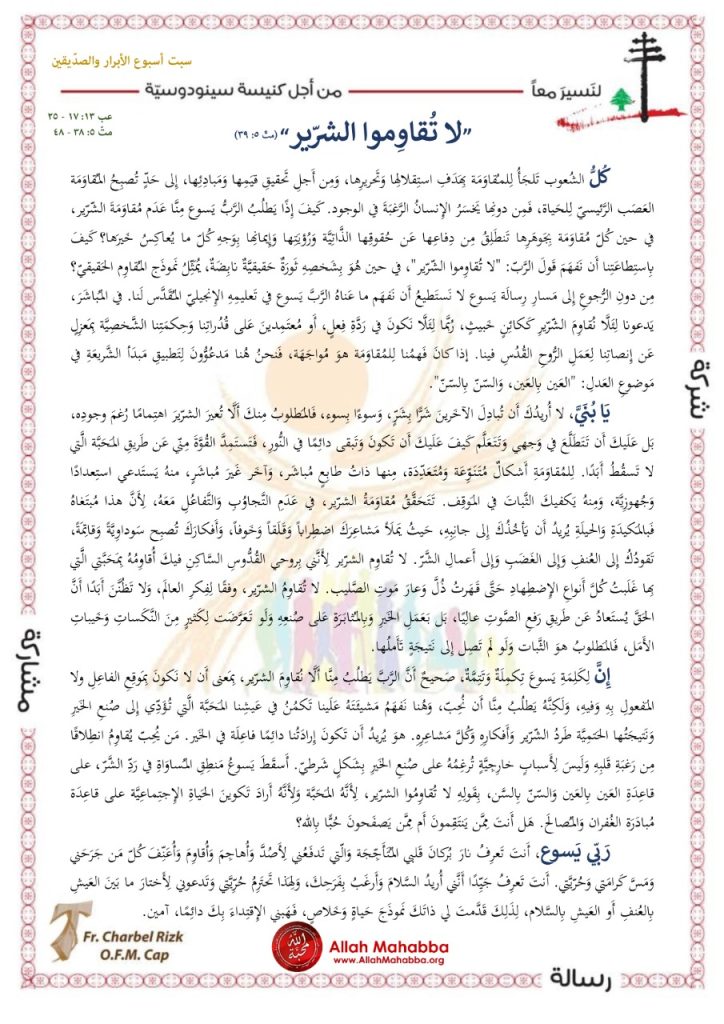 سبت أسبوع الأبرار والصدّيقين
لنَسيرَ معاً
من أجل كنيسة سينودوسيّة
عب ١٣: ١٧ - ٢٥
متّ ٥: ٣٨ - ٤٨
"لا تُقاوِموا الشرّير" (متّ ٥: ٣٩)
كُلُّ الشعوب تَلجَأُ لِلمُقاوَمَة بِهَدَفِ استِقلالِها وَتَحريرِها، وَمِن أَجلِ تَحقيقِ قِيَمِها وَمَبادِئِها، إِلى حَدٍّ تُصبِحُ المُقاوَمَة
العَصَب الرَّئيسيّ لِلحَياة، فَمِن دونِها يَخسَرُ الإنسانُ الرَّغبَةَ في الوجود. كَيفَ إِذًا يَطلُبُ الرَّبُّ يَسوع مِنَّا عَدَم مُقاوَمَةَ الشرّير،
في حين كُلّ مُقاوَمَة بِجَوهَرِها تَنطَلِقُ مِن دِفاعِها عَن حُقوقِها الذَّاتِيَّة وَرُؤيَتِها وَإيمانِها بِوَجهِ كُلّ ما يُعاكِسُ خَيرَها؟ كَيفَ
بِاستِطاعَتِنا أَن نَفهَمَ قَولَ الرَّبّ: "لا تُقاوِموا الشرّير"، في حين هُوَ بِشَخصِهِ ثَورَةٌ حَقيقيَّةٌ نابِضَةٌ، يُمَثِّلُ نَموذَجَ المُقاوِمِ الحَقيقيّ؟
مِن دونِ الرُّجوعِ إِلى مَسارِ رِسالَةِ يَسوع لا نَستَطيعُ أَن نَفهَم ما عَناهُ الرَّبّ يَسوع في تَعليمِهِ الإنجيليّ المُقَدَّس لَنا. في المُباشَر،
يَدعونا لِئَلَّا نُقاوِمَ الشرّير كَكائِنٍ خَبيثٍ، رُبَّما لِئَلَّا نَكونَ في رَدَّةِ فِعلٍ، أَو مُعتَمِدينَ عَلى قُدُراتِنا وَحِكمَتِنا الشَّخصيَّة بِمَعزِلٍ
عَن إِنصاتِنا لِعَمَلِ الرُّوحِ القُدُسِ فينا. إِذا كانَ فَهمُنا لِلمُقاوَمَة هوَ مُواجَهَة، فَنحنُ هُنا مَدعُوُّونَ لِتَطبيقِ مَبدَأ الشَّريعَة في
مَوضوعِ العَدلِ: "العَين بِالعَين، وَالسّنّ بِالسّنّ".
يَا بُنَيَّ، لا أُريدُكَ أَن تُبادِلَ الآخَرينَ شَرًّا بِشَرٍّ، وَسوءًا بِسوء، فَالمَطلوبُ مِنكَ أَلَّا تُعيرَ الشريرَ اهتِمامًا رُغمَ وجودِه،
بَل عَلَيكَ أَن تَتَطَلَّعَ في وَجهي وَتَتَعَلَّم كَيفَ عَلَيكَ أَن تَكونَ وَتَبقى دائِمًا في النُّور، فَتَستَمِدَّ القُوَّةَ مِنّي عَن طَريقِ المَحَبَّة الَّتي
لا تَسقُطُ أَبَدًا. لِلمُقاوَمَةِ أَشكالٌ مُتَنَوِّعَة وَمُتَعَدِّدَة، مِنها ذاتُ طابِعٍ مُباشَر، وَآخَر غَيرَ مُباشَر، مِنهُ يَستَدعي استِعدادًا
وَجُهوزِيَّة، وَمِنهُ يَكفيكَ الثَّباتَ في المَوقِف. تَتَحَقَّقُ مُقاوَمَةُ الشرّير، في عَدَمِ التَّجاوُبِ وَالتَّفاعُلِ مَعَهُ، لِأَنَّ هذا مُبتَغاهُ
فَبِالمَكيدَةِ وَالحيلَةِ يُريدُ أَن يَأخُذَكَ إِلى جانِبِهِ، حَيثُ يَملَأَ مَشاعِرَكَ اضطِراباً وَقَلَقاً وَخَوفاً، وَأَفكارَكَ تُصبِح سَوداوِيَّةً وَقاتِمَةً،
تَقودُكَ إِلى العُنفِ وَإِلى الغَضَبِ وَإِلى أَعمالِ الشَّرّ. لا تُقاوِم الشرير لِأَنَّني بِروحي القُدُّوسِ السَّاكِنِ فيكَ أُقاوِمُهُ بِمَحَبَّتي الَّتي
بِها غَلَبتُ كُلَّ أَنواعِ الإضطِهادِ حَتَّى قَهَرتُ ذُلَّ وَعارَ مَوتِ الصَّليب. لا تُقاوِمُ الشرّير، وِفقًا لِفِكرِ العالَم، وَلا تَظُنَّنَ أَبَدًا أَنَّ
الحَقَّ يُستَعادُ عَن طَريقِ رَفعِ الصَّوتِ عالِيًا، بَل بَعَمَلِ الخَيرِ وَبِالمُثابَرَةِ عَلى صُنعِهِ وَلَو تَعَرَّضَت لِكَثيرٍ مِنَ النَّكساتِ وَخَيباتِ
الأَمَل، فَالمَطلوبُ هو الثَّبات وَلَو لَم تَصِل إِلى نَتيجَةٍ تَأمَلُها.
إِنَّ لِكَلِمَةِ يَسوع تَكمِلَةٌ وَتَتِمَّةٌ، صَحيحٌ أَنَّ الرَّبَّ يَطلُبُ مِنَّا أَلَّا نُقاوِمَ الشرير، بِمَعنى أَن لا نَكونَ بِمَوقِعِ الفاعِلِ وَلا
المَفعولِ بِهِ وَفيهِ، وَلَكِنَّهُ يَطلُبُ مِنَّا أَن نُحِبّ، وَهُنا نَفهَمُ مَشيئَتَهُ عَلَينا تَكمُنُ في عَيشِنا المَحَبَّة الَّتي تُؤَدّي إِلى صُنعِ الخَيرِ
وَنَتيجَتُها الحَتمِيَّة طَردُ الشرّير وَأَفكارِه وَكُلَّ مَشاعِرِه. هو يُريدُ أَن تَكونَ إِرادَتُنا دائِمًا فاعِلَة في الخَير. مَن يُحِبّ يُقاوِمُ انطِلاقًا
مِن رَغبَةِ قَلبِهِ وَلَيسَ لِأَسبابٍ خارِجِيَّةٍ تُرغِمُهُ عَلى صُنعِ الخَيرِ بِشَكلٍ شَرطيّ. أَسقَطَ يَسوعُ مَنطِقَ المُساواةِ في رَدِّ الشَّرّ، عَلى
قاعِدَةِ العَين بِالعَين وَالسّنّ بِالسَّن، بِقَولِهِ لا تُقاوِمُوا الشرير، لِأَنَّهُ المَحَبَّة وَلِأَنَّهُ أَرادَ تَكوينَ الحَياةِ الإجتِماعِيَّة عَلى قاعِدَةِ
مُبادَرَةِ الغُفران وَالمُصالَح. هَل أَنتَ مِمَّن يَنتَقِمونَ أَم مِمَّن يَصفَحونَ حُبًّا بِالله؟
رَبّي يَسوع، أَنتَ تَعرِفُ نارَ بُركانَ قَلبي المُتَأَجِّجَة وَالَّتي تَدفَعُني لِأَصُدَّ وَأُهاجِمَ وَأُقاوِمَ وَأُعَنِّفَ كُلّ مَن جَرَحَني
وَمَسَّ كَرامَتي وَحُرِّيَّتي. أَنتَ تَعرِفُ جَيِّدًا أَنَّني أُريدُ السَّلامَ وَأَرغَبُ بِفَرَحِكَ، وَلِهَذا تَحتَرِمُ حُرِّيَّتي وَتَدعوني لِأَختارَ ما بَينَ العَيش
بِالعُنفِ أَو العَيشِ بِالسَّلام، لِذَلِكَ قَدَّمتَ لي ذاتَكَ نَموذَجَ حَياةٍ وَخَلاصٍ، فَهَبني الإقتِداءَ بِكَ دائِمًا، آمين.
شركة
مشاركة
رسالة
Fr. Charbel Rizk
O.F.M. Cap
الله محبّة
Allah Mahabba
www.AllahMahabba.org